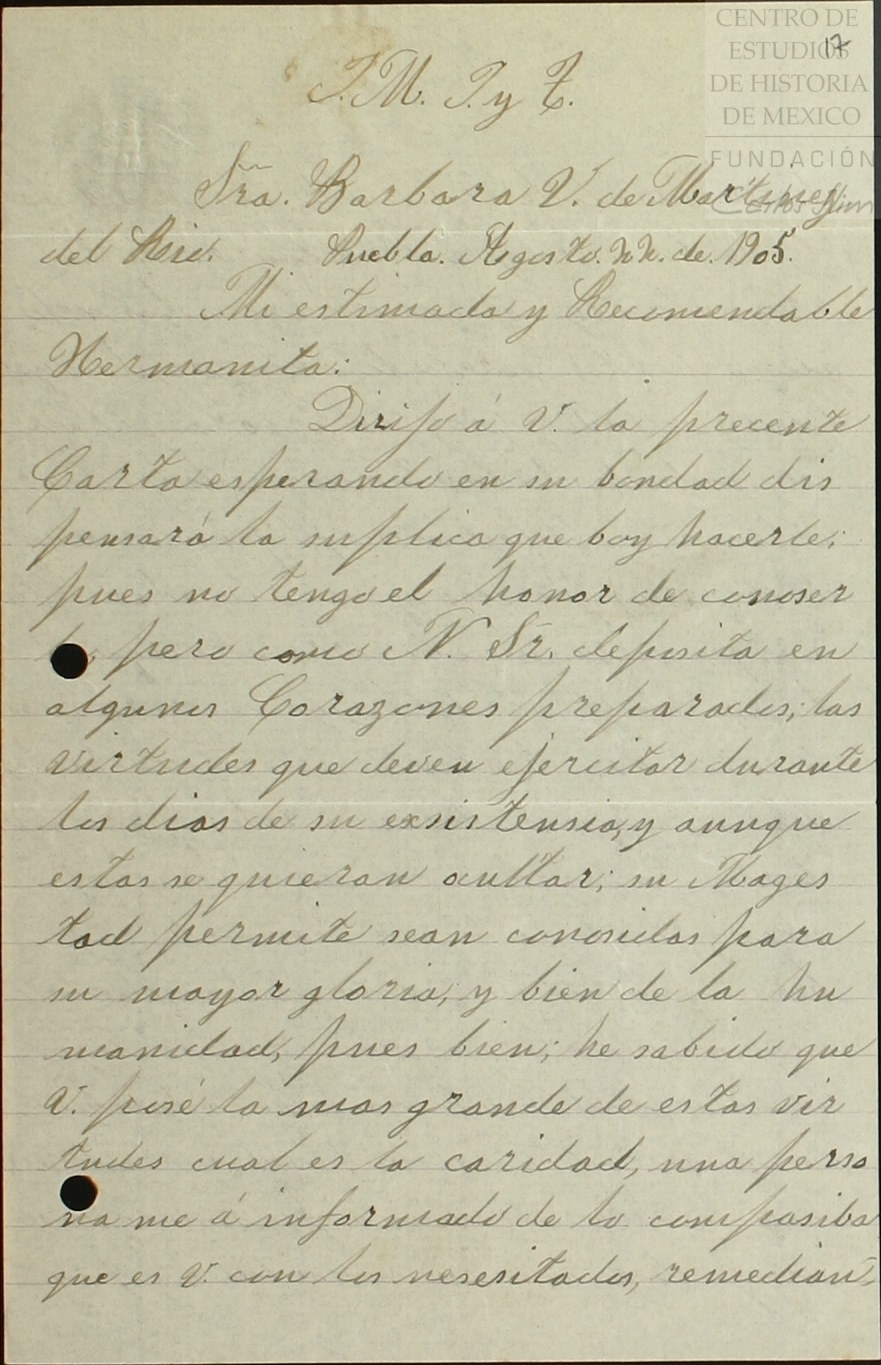 CENTRO DE
ESTUDIOS
DE HISTORIA
DE MEXICO
FUNDACIÓN
Carlos Slim
17
J. M. J. y T.
Sra. Barbara V. de Martinez
del Rio. Puebla. Agosto. 22. de. 1905.
Mi estimada y Recomendable
Hermanita:
Dirijo á V. la precente
Carta esperando en su bondad dis
pensará la suplica que boy hacerle;
pues no tengo el honor de conoser
pero como N. Sr. deposita en
algunos Corazones preparados; las
virtudes que deven ejercitar durante
los dias de su exsistensia, y aunque
estas se quieran ocultar; su Mages
tad permite sean conosidas para
su mayor gloria; y bien de la hu
manidad, pues bien; he sabido que
V. posé la mas grande de estas vir
tudes cual es la caridad, una perso
na me á informado de lo compasiba
que es V. con los nesesitados, remedian-